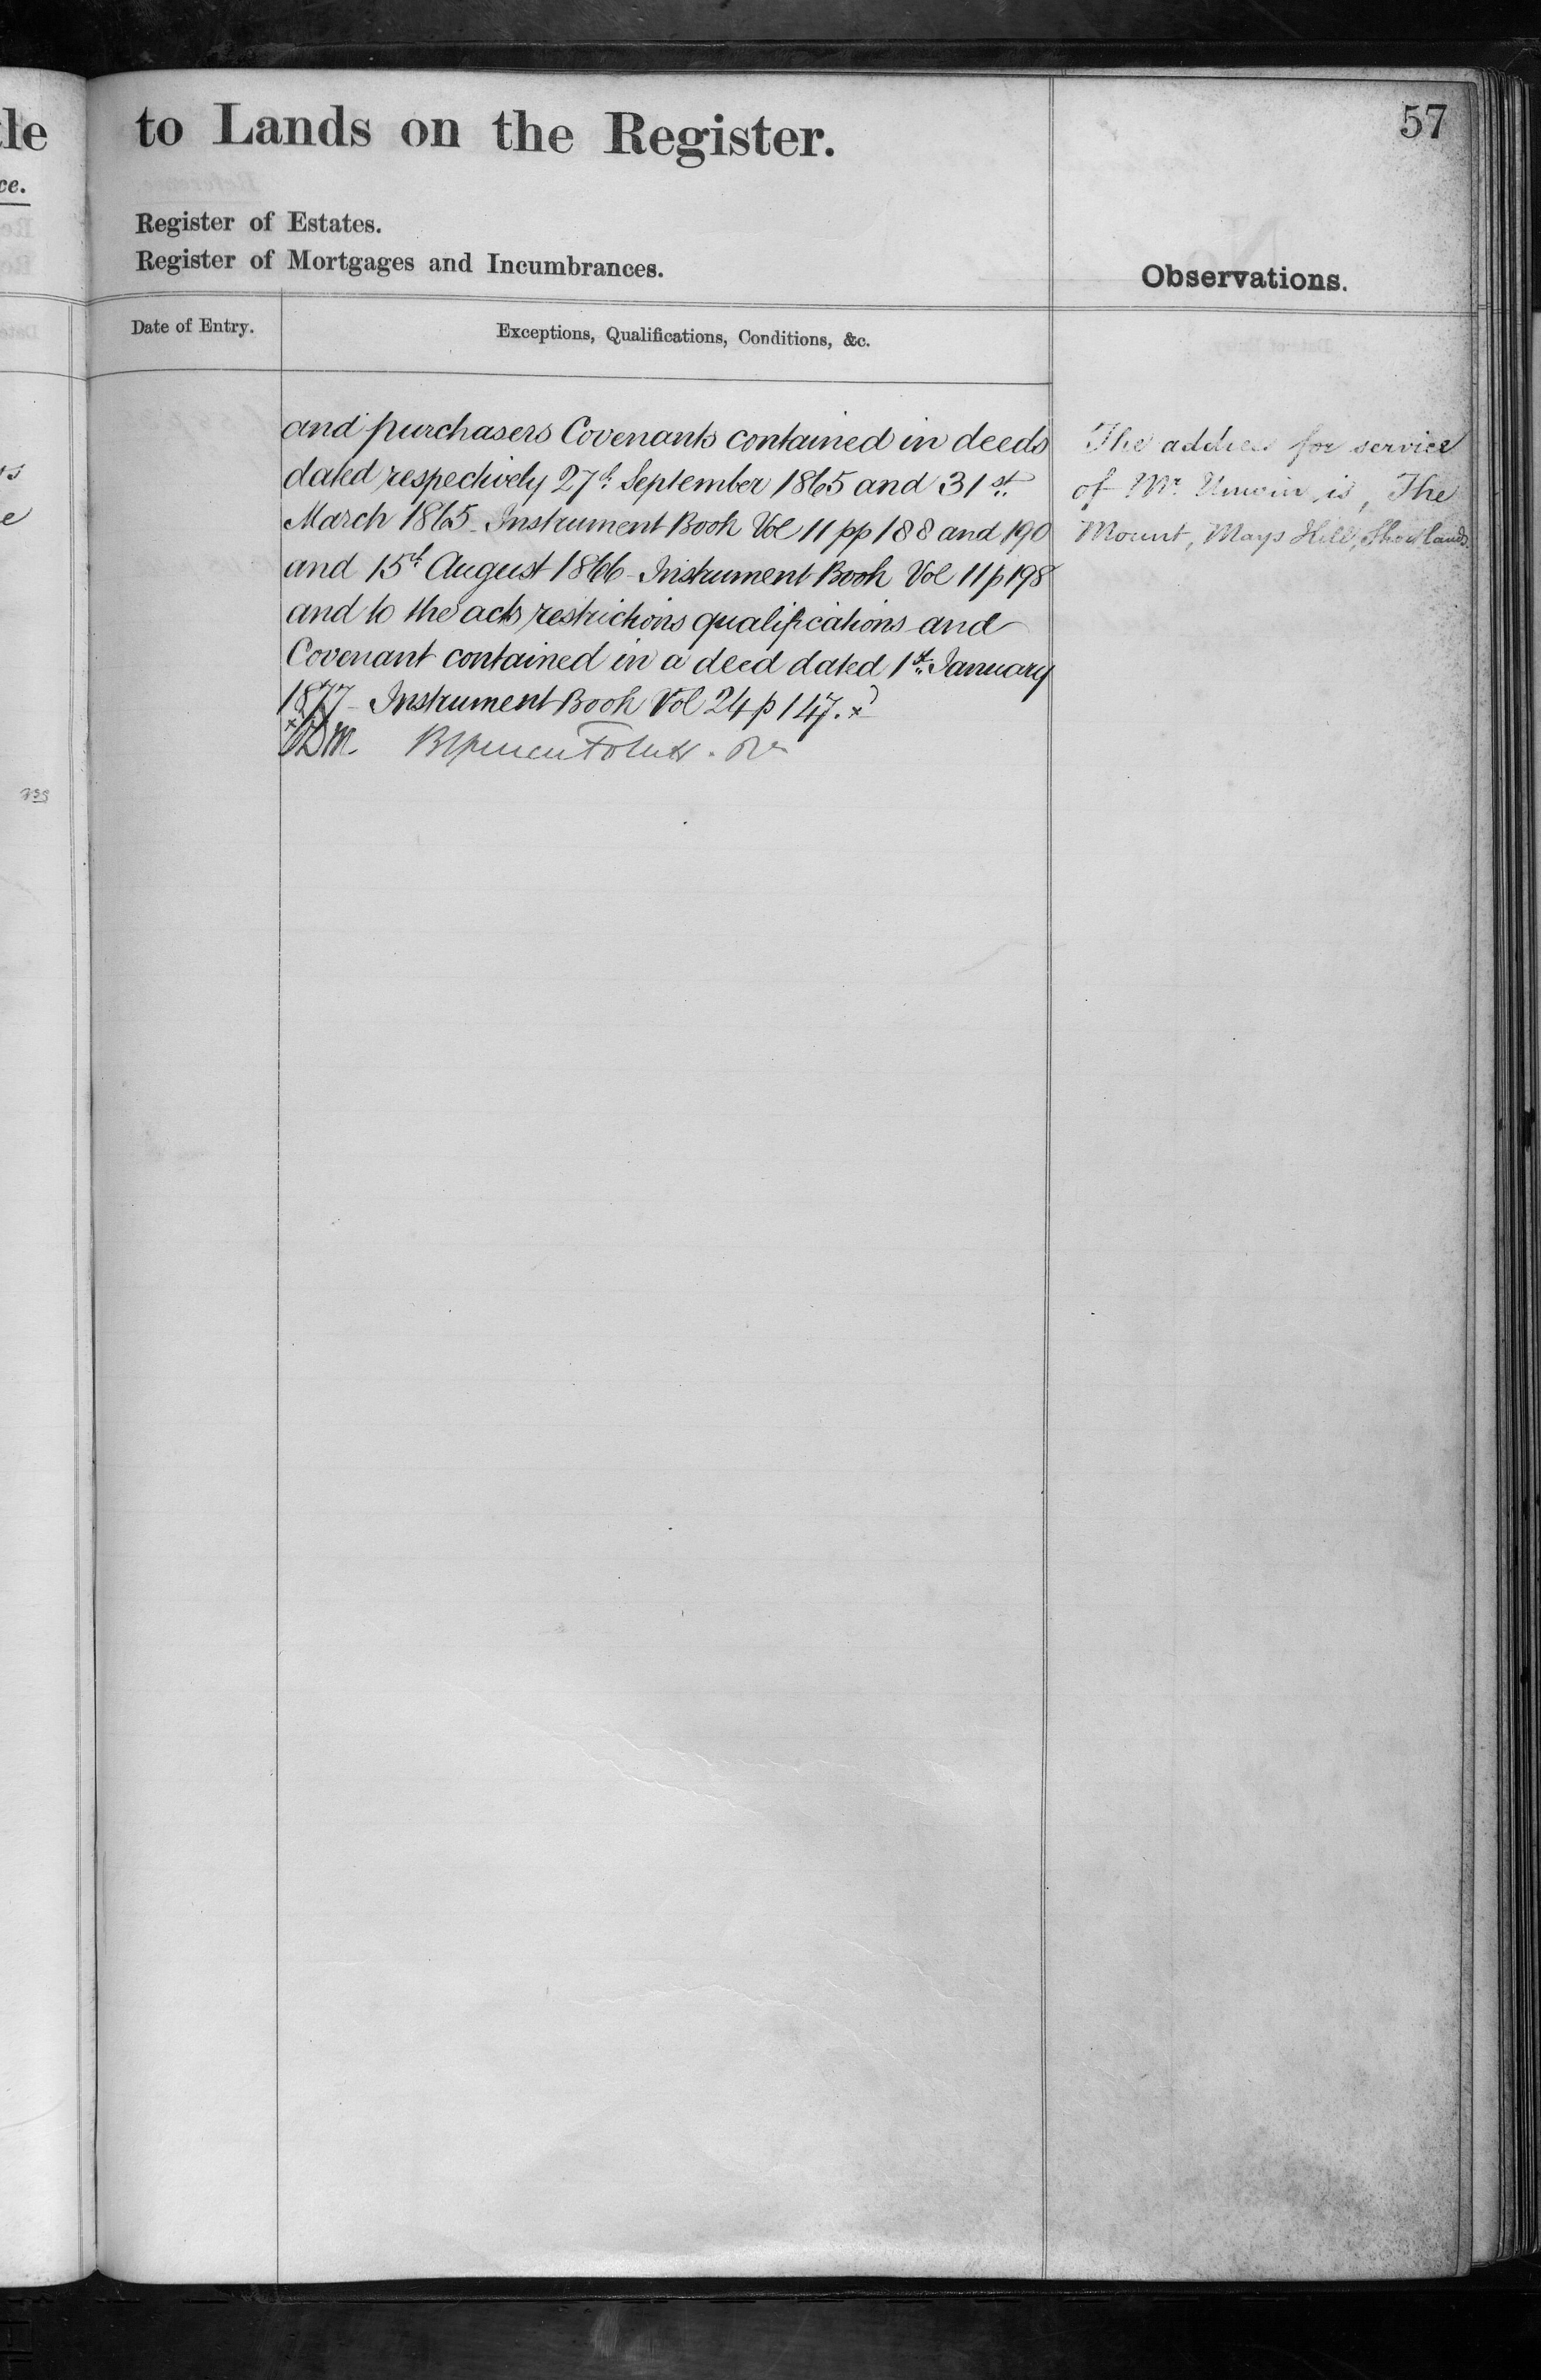 to Lands on the Register.
57
Register of Estates.
Register of Mortgages and Incumbrances.
Observations.
Date of Entry.
Exceptions, Qualifications, Conditions, &c.
and purchasers Covenants contained in deeds
dated respectively 27th September 1865 and 31st
March 1865 - Instrument Book Vol 11 pp 188 and 190
and 15th August 1866 - Instrument Book Vol 11 p 198
and to the acts restrictions qualifications and
Covenant contained in a deed dated 1st January
1877 - Instrument Book Vol 24 p 147. x
The address for service
of Mr. Unwin is, The
Mount, Mays Hill, Shortlands.